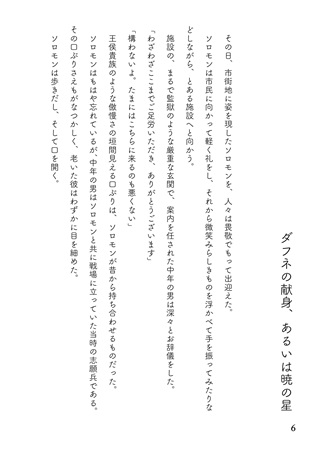 ダフネの献身、あるいは暁の星
その日、市街地に姿を現したソロモンを、人々は畏敬でもって出迎えた。
ソロモンは市民に向かって軽く礼をし、それから微笑みらしきものを浮かべて手を振ってみたりな
どしながら、とある施設へと向かう。
施設の、まるで監獄のような厳重な玄関で、案内を任された中年の男は深々とお辞儀をした。
「わざわざここまでご足労いただき、ありがとうございます」
「構わないよ。たまにはこちらに来るのも悪くない」
王侯貴族のような傲慢さの垣間見える口ぶりは、ソロモンが昔から持ち合わせるものだった。
ソロモンはもはや忘れているが、中年の男はソロモンと共に戦場に立っていた当時の志願兵である。
その口ぶりさえもがなつかしく、老いた彼はわずかに目を細めた。
ソロモンは歩きだし、そして口を開く。
6